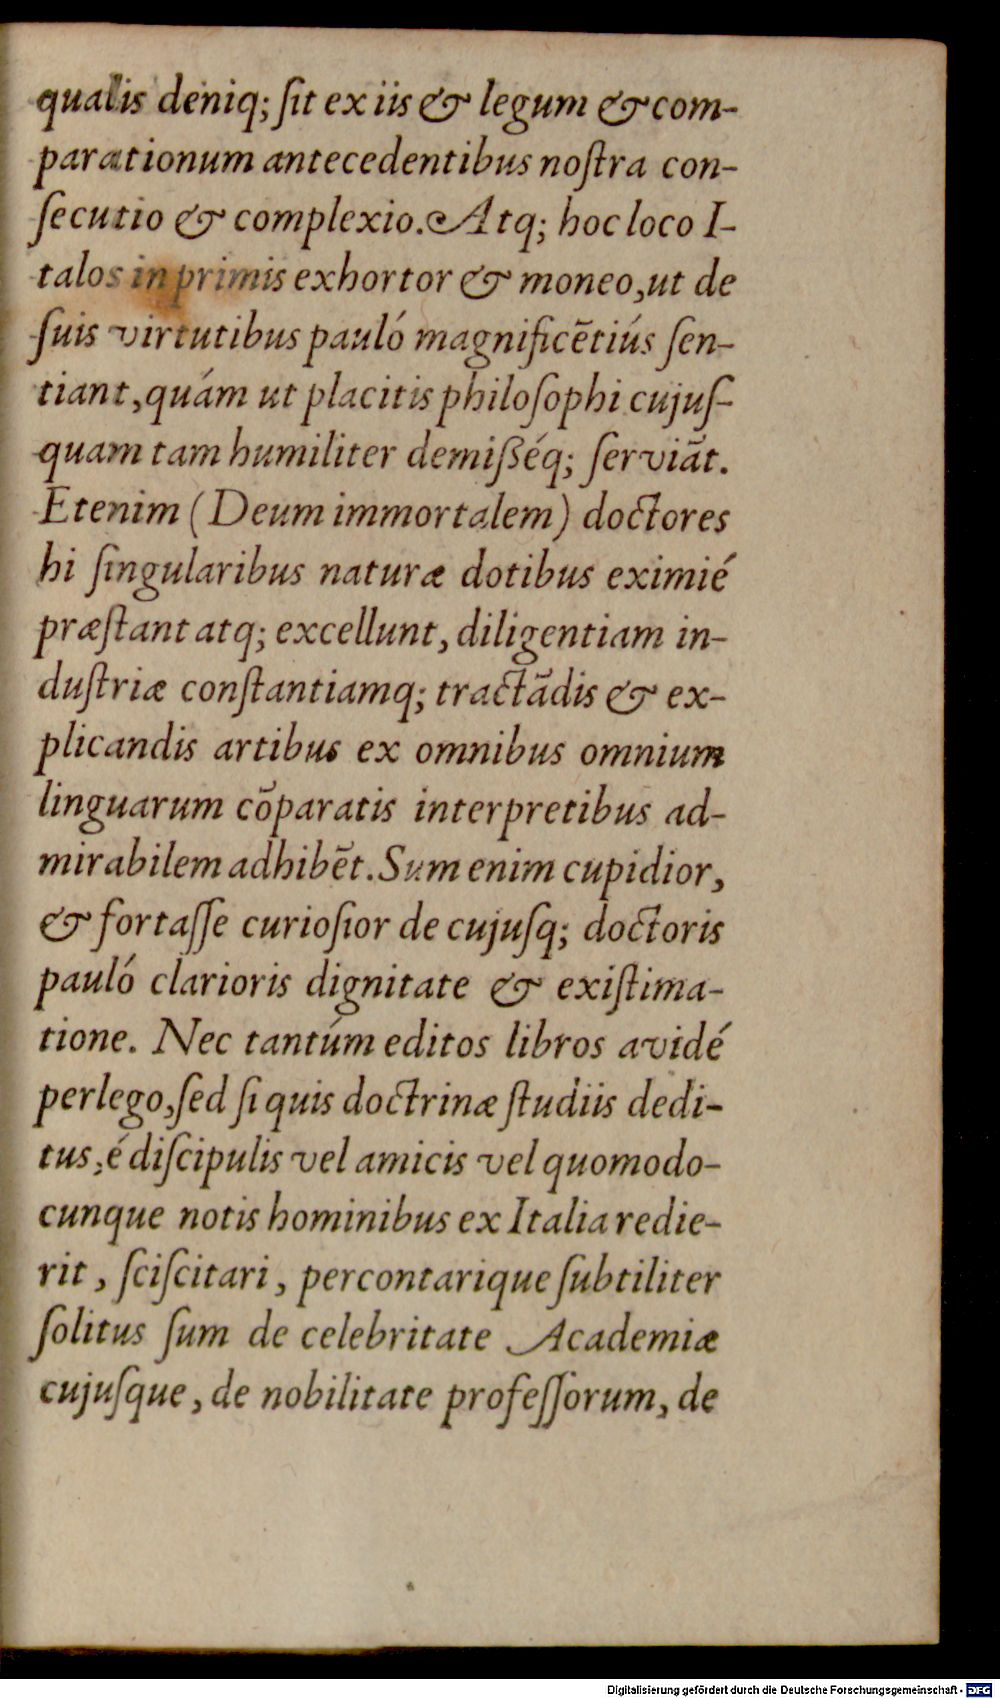 qualis deniq; ſit ex iis & legum & com-
parationum antecedentibus noſtra con-
ſecutio & complexio. Atq; hoc loco I-
talos in primis exhortor & moneo, ut de
ſuis virtutibus pauló magnificētiús ſen-
tiant, quám ut placitis philoſophi cujuſ-
quam tam humiliter demiſséq; ſerviāt.
Etenim (Deum immortalem) doctores
hi ſingularibus naturæ dotibus eximié
præſtant atq; excellunt, diligentiam in-
duſtriæ conſtantiamq; tractādis & ex-
plicandis artibus ex omnibus omnium
linguarum cōparatis interpretibus ad-
mirabilem adhibēt. Sum enim cupidior,
& fortaſſe curioſior de cujuſq; doctoris
pauló clarioris dignitate & exiſtima-
tione. Nec tantúm editos libros avidé
perlego, ſed ſi quis doctrinæ ſtudiis dedi-
tus, é diſcipulis vel amicis vel quomodo-
cunque notis hominibus ex Italia redie-
rit, ſciſcitari, percontarique ſubtiliter
ſolitus ſum de celebritate Academiæ
cujuſque, de nobilitate profeſſorum, de
Digitalisierung gefördert durch die Deutsche Forschungsgemeinschaft - DFG